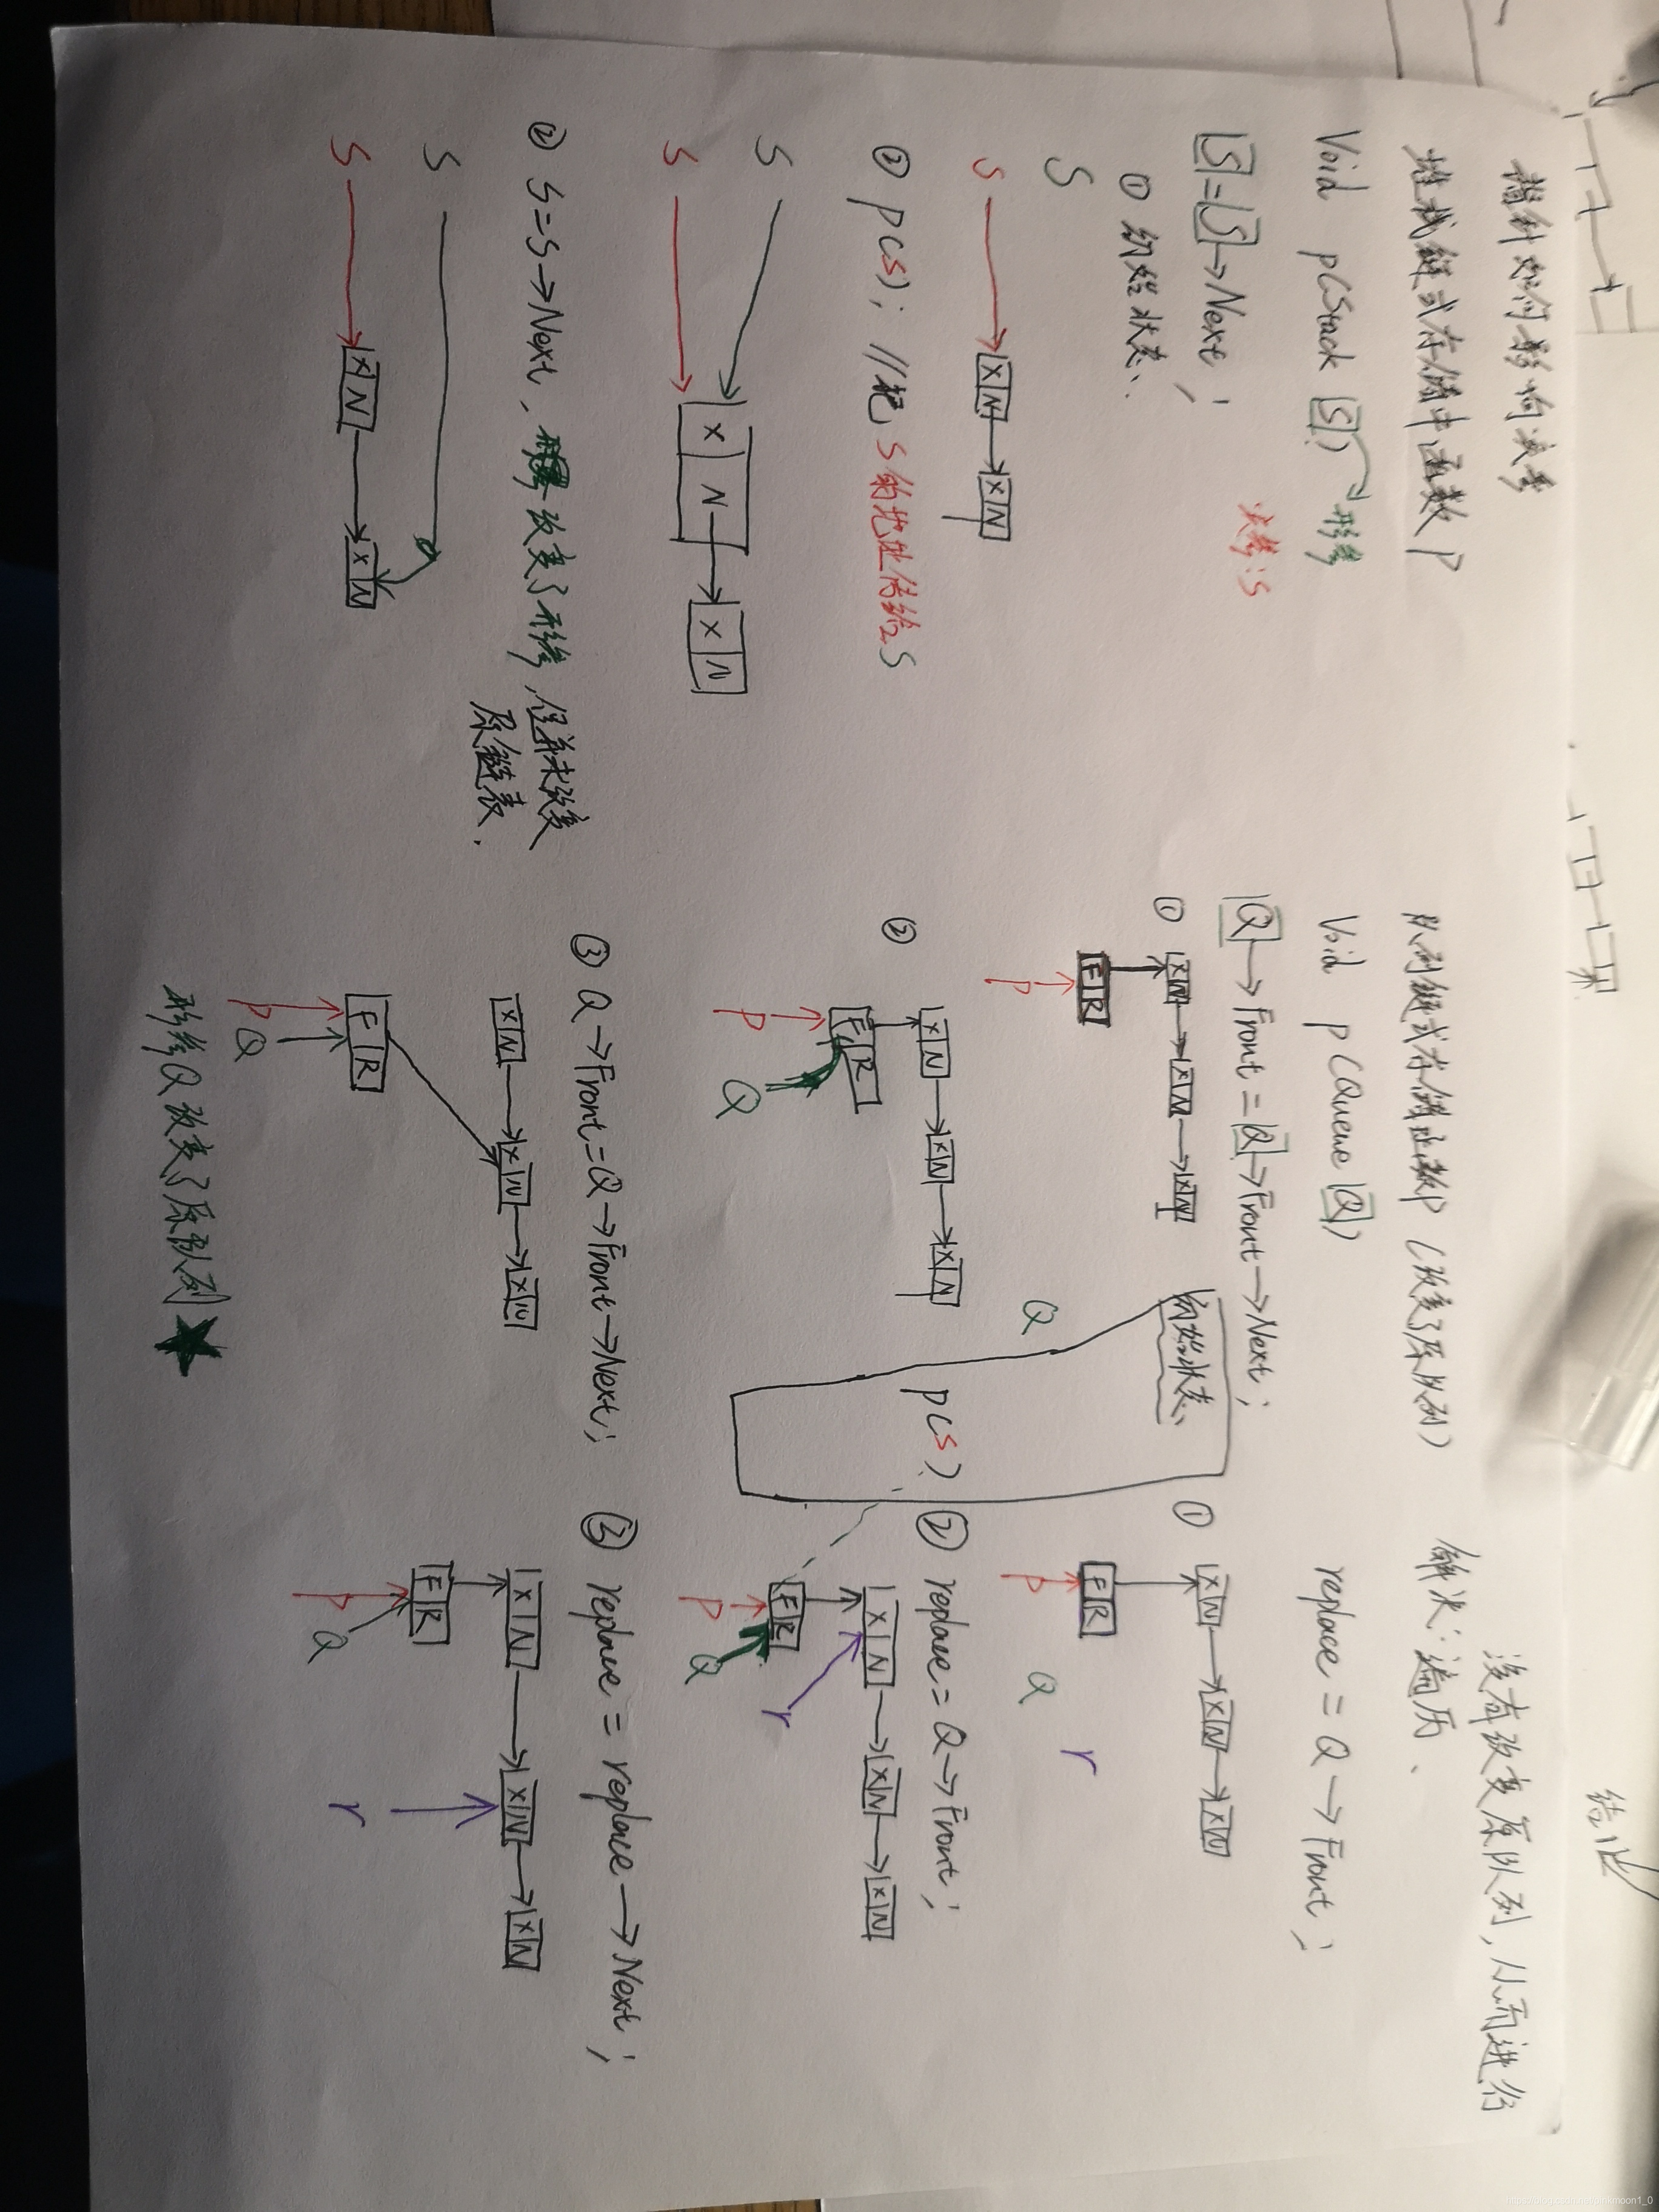 指针如何影响实参
堆栈链式存储中函数P
Void p(Stack S) 形参
实参:S
S=S→Next;
① 初始状态、
S
S
X N X N
② p(S); //把S的地址传给S
S
S
X N X N
② S=S→Next, 改变了形参,但并未改变
原链表.
S
S
X N X N
队列链式存储 P (改变了原队列)
Void p(Queue Q)
Q→Front=Q→Front→Next;
① X N X N X N
F R
P
初始状态、
Q
② X N X N X N
F R
P
Q
p(S)
③ Q→Front=Q→Front→Next;
X N X N X N
F R
P
Q
形参Q改变了原队列
没有改变原队列,从而进行
解决:遍历.
replace=Q→Front;
① X N X N X N
F R
P
Q
r
② replace=Q→Front;
X N X N X N
F R
P
Q
r
③ replace=replace→Next;
X N X N X N
F R
P
Q
r